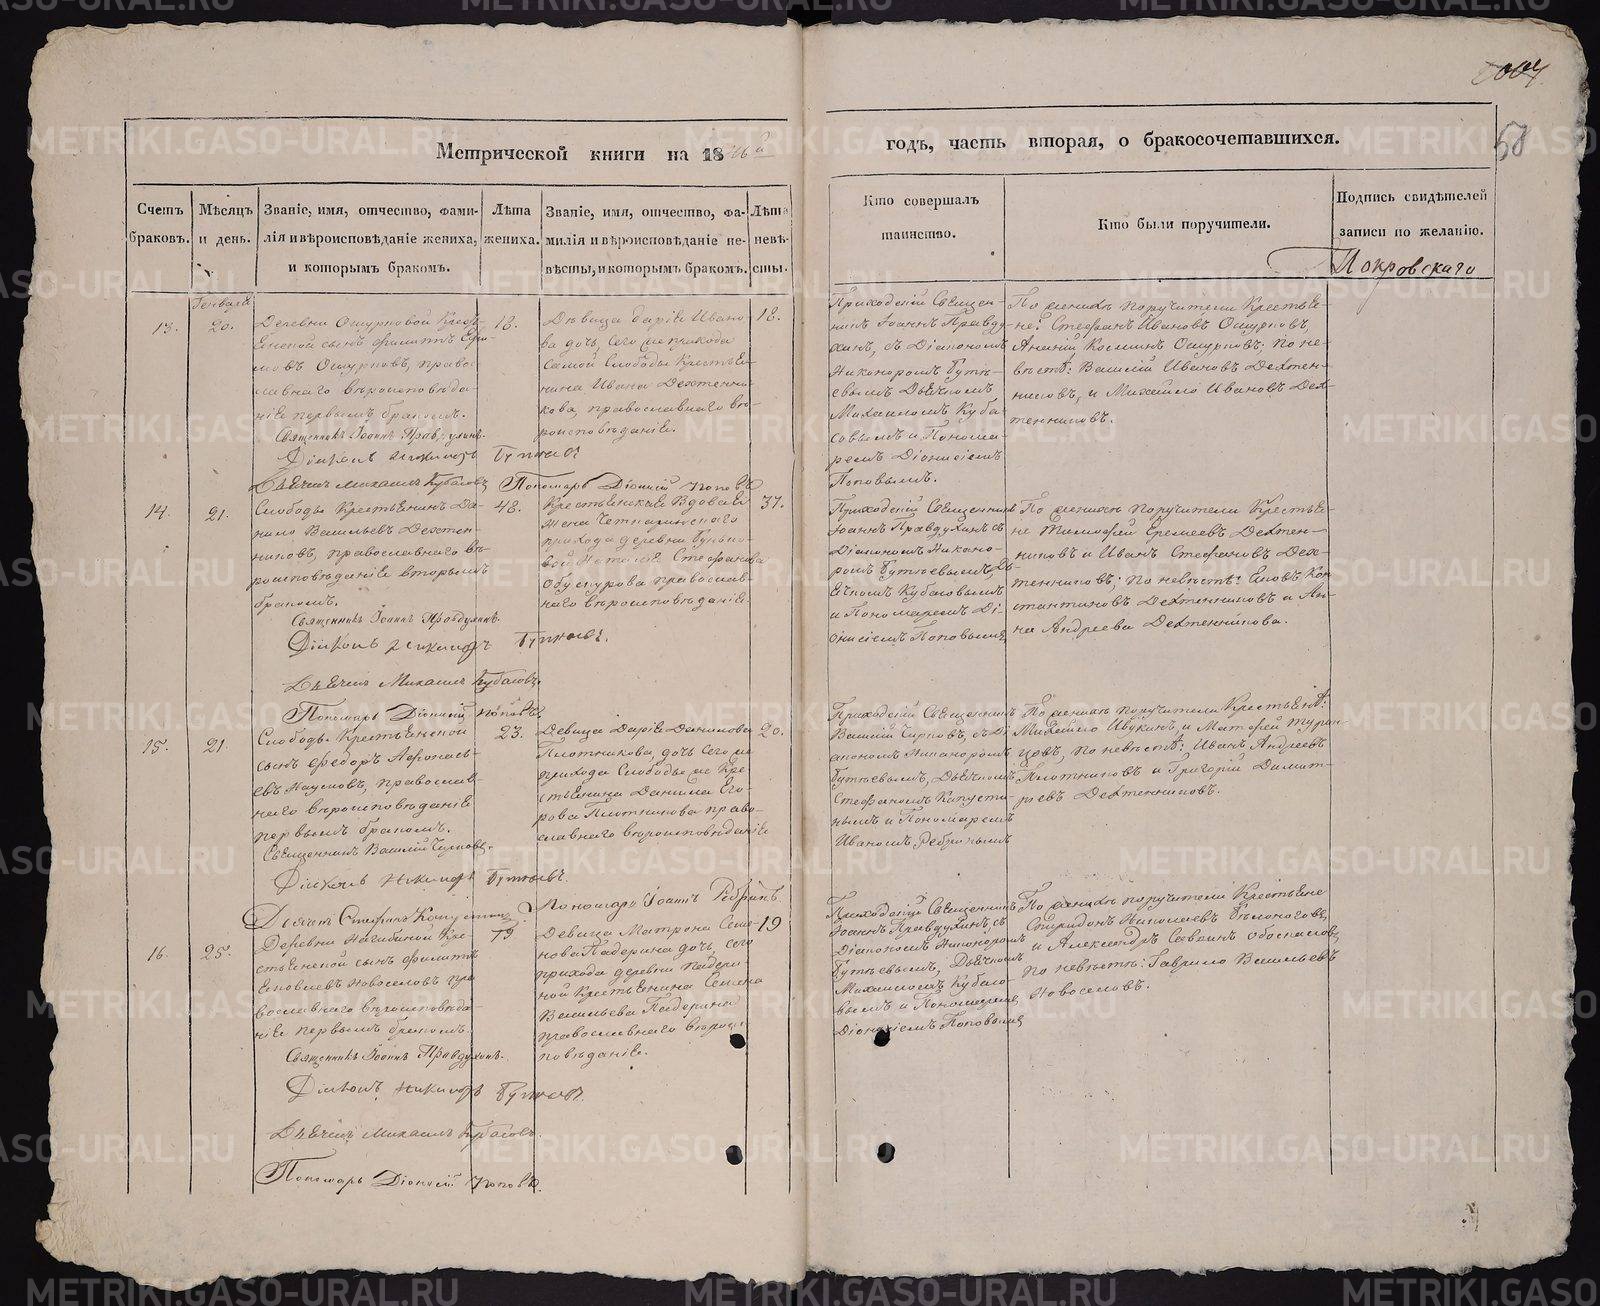 Метрической книги на 1846й
годъ, часть вторая, о бракосочетавшихся.
58
Счетъ браковъ.
Мѣсяцъ и день.
Званіе, имя, отчество, фами-
лія и вѣроисповѣданіе жениха,
и которымъ бракомъ.
Лѣта жениха.
Званіе, имя, отчество, фа-
милія и вѣроисповѣданіе не-
вѣсты, и которымъ бракомъ.
Лѣта невѣ-
сты.
Кто совершалъ
таинство.
Кто были поручители.
Подпись свидѣтелей
записи по желанію.
Покровскаго
Генваря
13.
20.
Деревни Ошурковой Кресть-
енской сынъ Филиппъ
Ошурковъ, право-
славнаго вѣроисповѣда-
ніе первымъ бракомъ.
Священникъ Іоаннъ Правдухинъ.
Діаконъ Никаноръ Бутыевъ
Дьячекъ Михаилъ Кубасовъ
Пономарь Діонисій Поповъ
18.
Дѣвица Дарія Ивано-
ва дочь, сего же прихода
самой Слободы Крестьен-
нина Ивана Дехтенни-
кова, православнаго вѣ-
роисповѣданіе.
18.
Приходскій Священ-
никъ Іоаннъ Правду-
хинъ, съ Діакономъ
Никаноромъ Буты-
евымъ, Дьячкомъ
Михаиломъ Куба-
совымъ и Понома-
ремъ Діонисіемъ
Поповымъ.
По женихѣ поручители Крестье-
не: Стефанъ Ивановъ Ошурковъ,
Ананій Космин Ошурковъ; по не-
вѣстѣ: Василій Ивановъ Дехтен-
никовъ, и Михайло Ивановъ Дех-
тенниковъ.
14.
21.
Слободы Крестьенинъ Да-
нило Васильевъ Дехтен-
никовъ, православнаго вѣ-
роисповѣданіе вторымъ
бракомъ.
Священникъ Іоаннъ Правдухинъ.
Діаконъ Никаноръ Бутыевъ.
Дьячекъ Михаилъ Кубасовъ.
Пономарь Діонисій Поповъ.
48.
Крестьенская Вдова
жена
прихода деревни
Наталіе Стефанова
православ-
наго вѣроисповѣданіе.
37.
Приходскій Священникъ
Іоаннъ Правдухинъ съ
Діакономъ Никано-
ромъ Бутыевымъ, Дь-
ячкомъ Кубасовымъ
и Пономаремъ Ді-
онисіемъ Поповымъ
По женихѣ поручители Крестье-
не Тимофей Еремеевъ Дехтен-
никовъ и Иванъ Стефановъ Дех-
тенниковъ; по невѣстѣ: Іаковъ Кон-
стантиновъ Дехтенниковъ и Ан-
на Андреева Дехтенникова.
15.
21.
Слободы Крестьенской
сынъ Федоръ Афонась-
евъ Наумовъ, православ-
наго вѣроисповѣданіе
первымъ бракомъ.
Священникъ Василій Чирковъ.
Діаконъ Никаноръ Бутыевъ.
Дьячекъ Стефанъ Капустинъ
Пономарь Іоаннъ Ребринъ
23.
Девица Даріе Данилова
Плотникова, дочь сего же
прихода Слободы же Кре-
стьенина Данила Его-
рова Плотникова право-
славнаго вѣроисповѣданіе
20.
Приходскій Священникъ
Василій Чирковъ, съ Ді-
акономъ Никаноромъ
Бутыевымъ, Дьячкомъ
Стефаномъ Капусти-
нымъ и Пономаремъ
Иваномъ Ребринымъ
По женихѣ поручители Крестьене:
Михайло и Матфей
по невѣстѣ: Иванъ Андреевъ
Плотниковъ и Григорій Димит-
ріевъ Дехтенниковъ.
16.
25.
Деревни Нагибиной Кре-
стьенской сынъ Филиппъ
Іаковлевъ Новоселовъ пра-
вославнаго вѣроисповѣда-
ніе первымъ бракомъ.
Священникъ Іоаннъ Правдухинъ.
Діаконъ Никаноръ Бутыевъ.
Дьячекъ Михаилъ Кубасовъ.
Пономарь Діонисій Поповъ.
19
Девица Матрона Семе-
нова Падерина дочь, сего
прихода деревни Падери-
ной Крестьенина Семена
Васильева Падерина
православнаго вѣроис-
повѣданіе.
19
Приходскій Священникъ
Іоаннъ Правдухинъ, съ
Діакономъ Никаноромъ
Бутыевымъ, Дьячкомъ
Михаиломъ Кубасо-
вымъ и Пономаремъ
Діонисіемъ Поповымъ
По женихѣ поручители Крестьене
Спиридонъ Николаевъ Бѣлоноговъ,
и Александръ Савинъ
по невѣстѣ: Гаврило Васильевъ
Новоселовъ.
METRIKI.GASO-URAL.RU